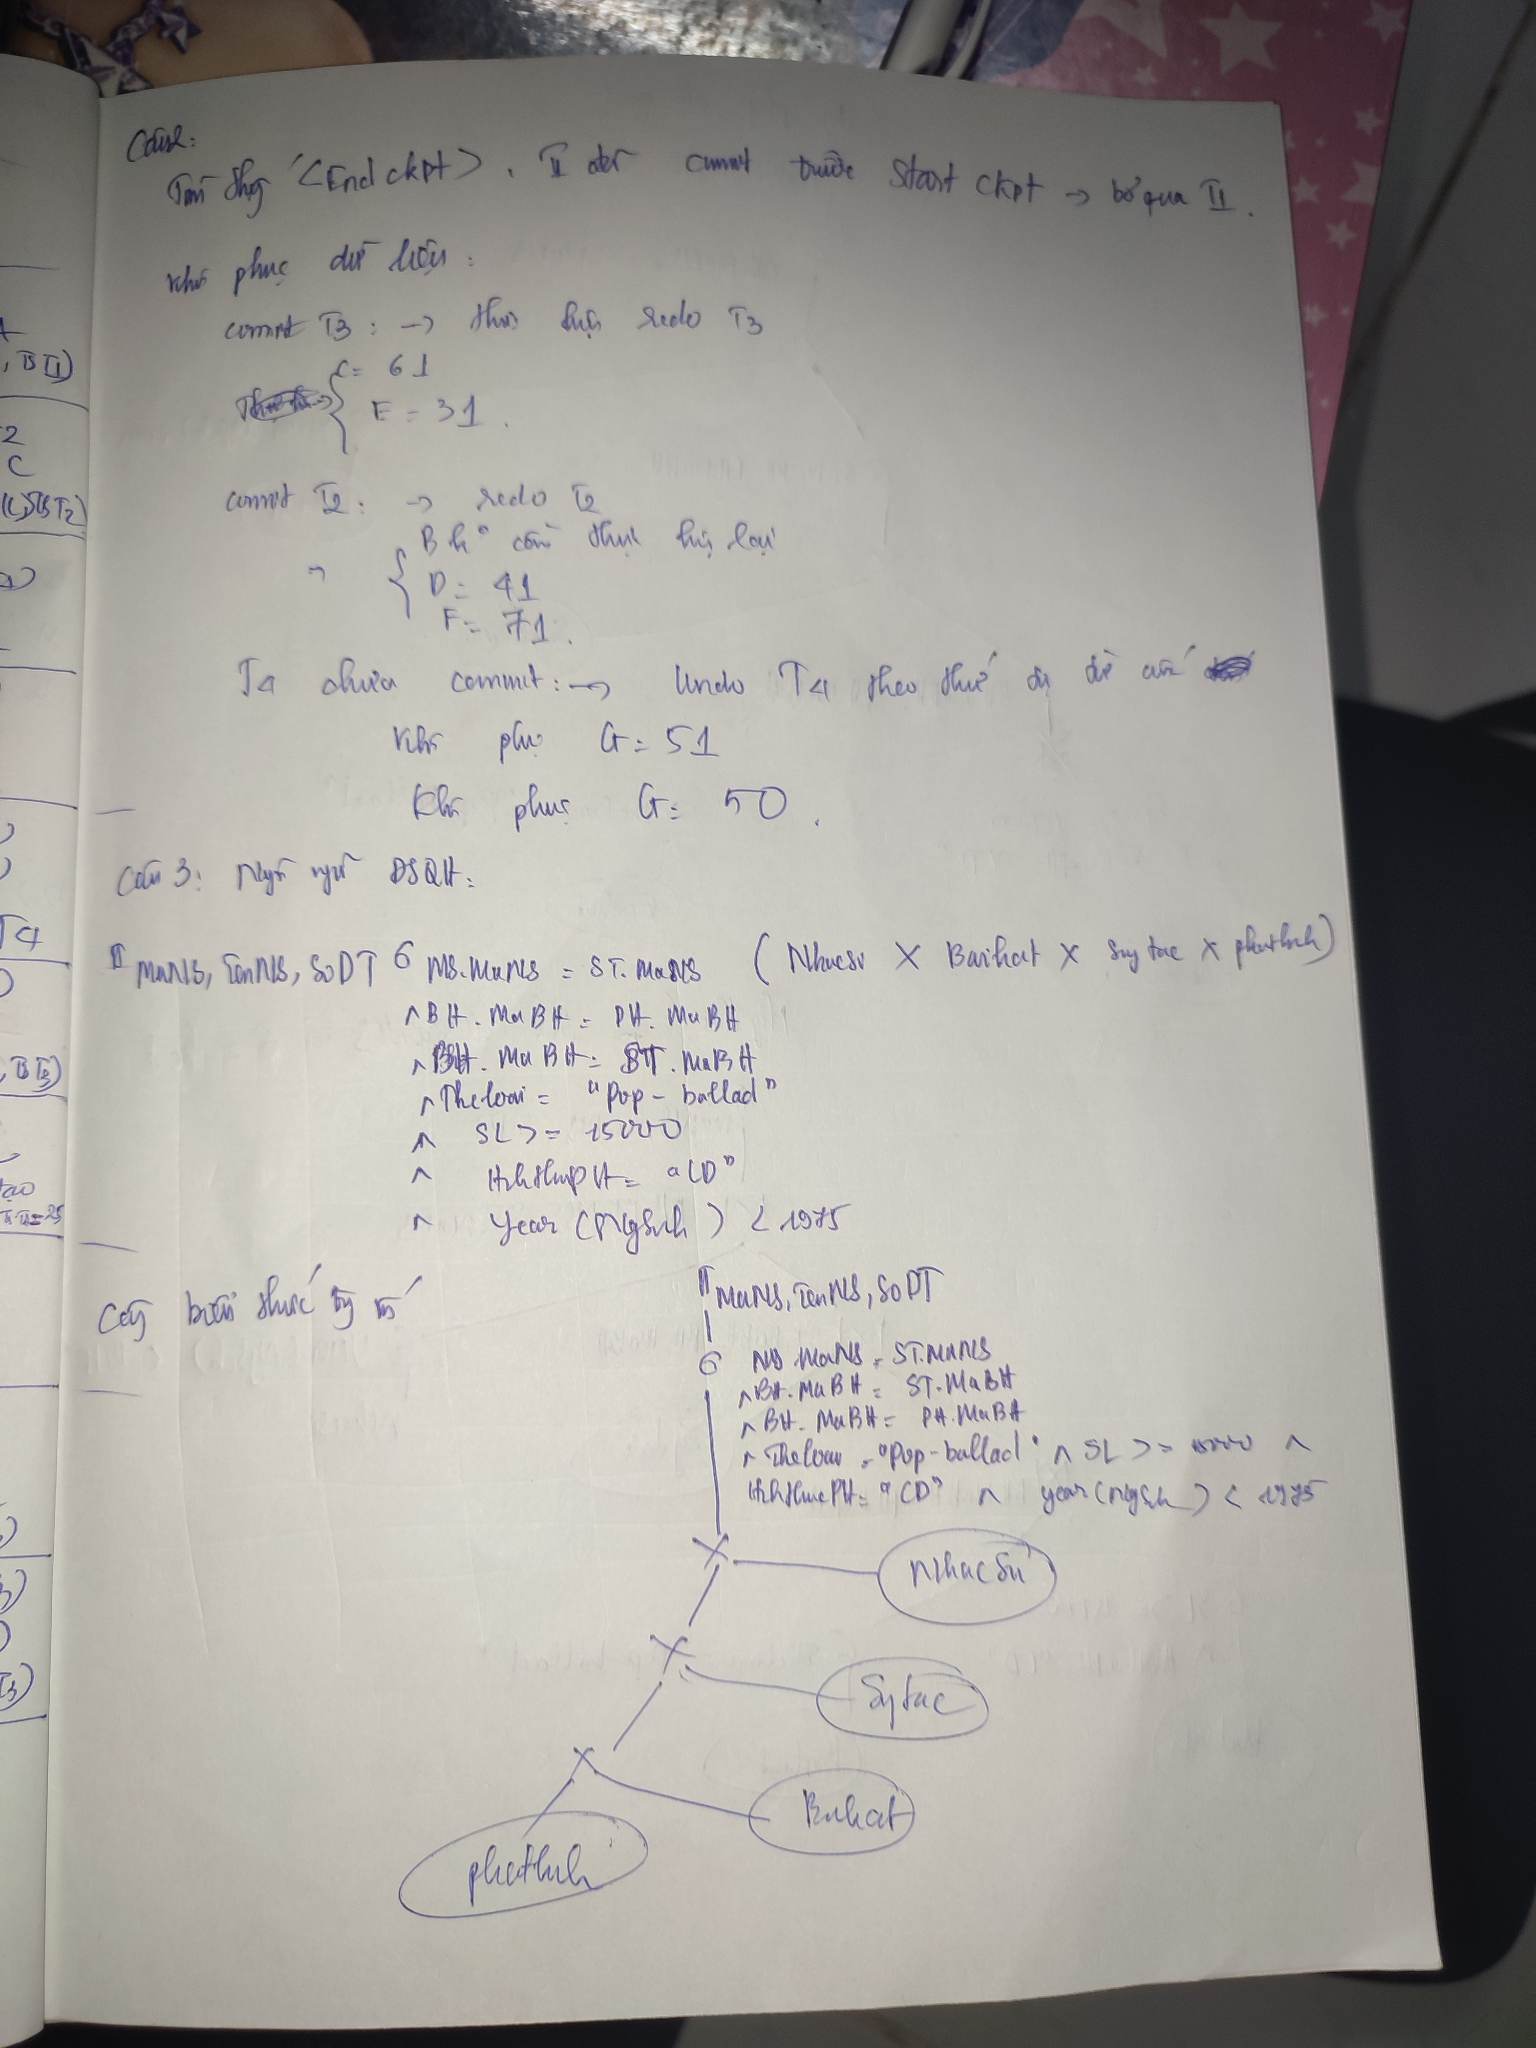 , BT1)
2
C
T4
, BT3)
tạo
Câu 2:
Tìm thấy <End ckpt>. T1 đã commit trước Start ckpt → bỏ qua T1.
Khôi phục dữ liệu:
commit T3: → thực hiện redo T3
C = 61
E = 31.
commit T2: → redo T2
B k° cần thực hiện lại
D = 41
F = 71.
T4 chưa commit: → Undo T4 theo thứ tự từ cuối
Khôi phục G = 51
Khôi phục G = 50.
Câu 3: Ngôn ngữ ĐSQH:
π MaNS, TenNS, SoDT σ NS.MaNS = ST.MaNS (Nhacsi X Baihat X Sangtac X phathanh)
∧ BH.MaBH = PH.MaBH
∧ BH.MaBH = ST.MaBH
∧ Theloai = "Pop-ballad"
∧ SL >= 15000
∧ HinhthucPH = "CD"
∧ year(Ngsinh) < 1975
Cây biểu thức
π MaNS, TenNS, SoDT
σ NS.MaNS = ST.MaNS
∧ BH.MaBH = ST.MaBH
∧ BH.MaBH = PH.MaBH
∧ Theloai = "Pop-ballad" ∧ SL >= 15000 ∧
HinhthucPH = "CD" ∧ year(Ngsinh) < 1975
X
Nhacsi
X
Sangtac
X
Baihat
phathanh